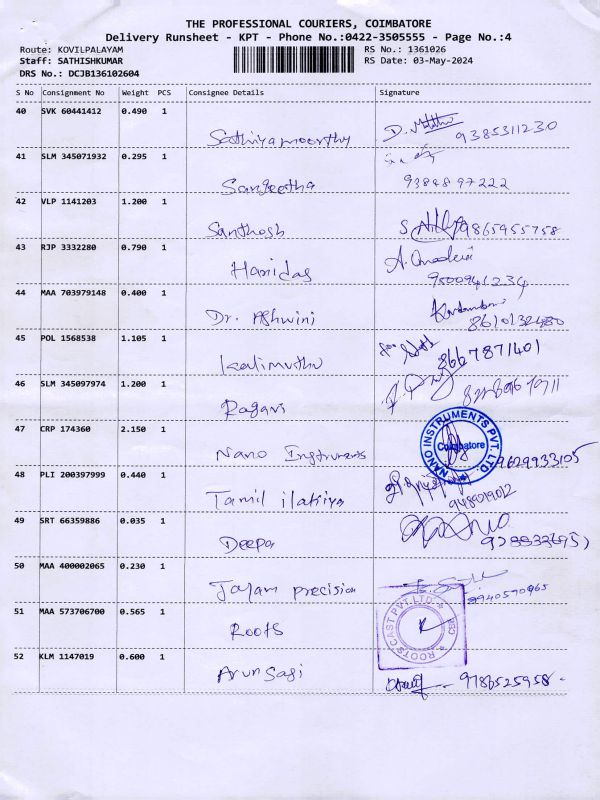 THE PROFESSIONAL COURIERS, COIMBATORE
Delivery Runsheet - KPT - Phone No.:0422-3505555 - Page No.:4
Route: KOVILPALAYAM RS No.: 1361026
Staff: SATHISHKUMAR RS Date: 03-May-2024
DRS No.: DCJB136102604
S No Consignment No Weight PCS Consignee Details Signature
40 SVK 60441412 0.490 1
Sathiyamoorthy 9385311230
41 SLM 345071932 0.295 1
Sangeetha
42 VLP 1141203 1.200 1
Santhosh 9865955758
43 RJP 3332280 0.790 1
Haridas 9500941234
44 MAA 703979148 0.400 1
Dr. Ashwini 8610132480
45 POL 1568538 1.105 1
Kalimuthu 8667871401
46 SLM 345097974 1.200 1
Ragavi
47 CRP 174360 2.150 1
Nano Instruments NANO INSTRUMENTS PVT. LTD. Coimbatore 9629933105
48 PLI 200397999 0.440 1
Tamil ilakiya 9489019012
49 SRT 66359886 0.035 1
Deepa
50 MAA 400002065 0.230 1
Jayam precision 9940590965
51 MAA 573706700 0.565 1
Roots ROOTS CAST PVT. LTD.
52 KLM 1147019 0.600 1
Arun Sagi 9786525958